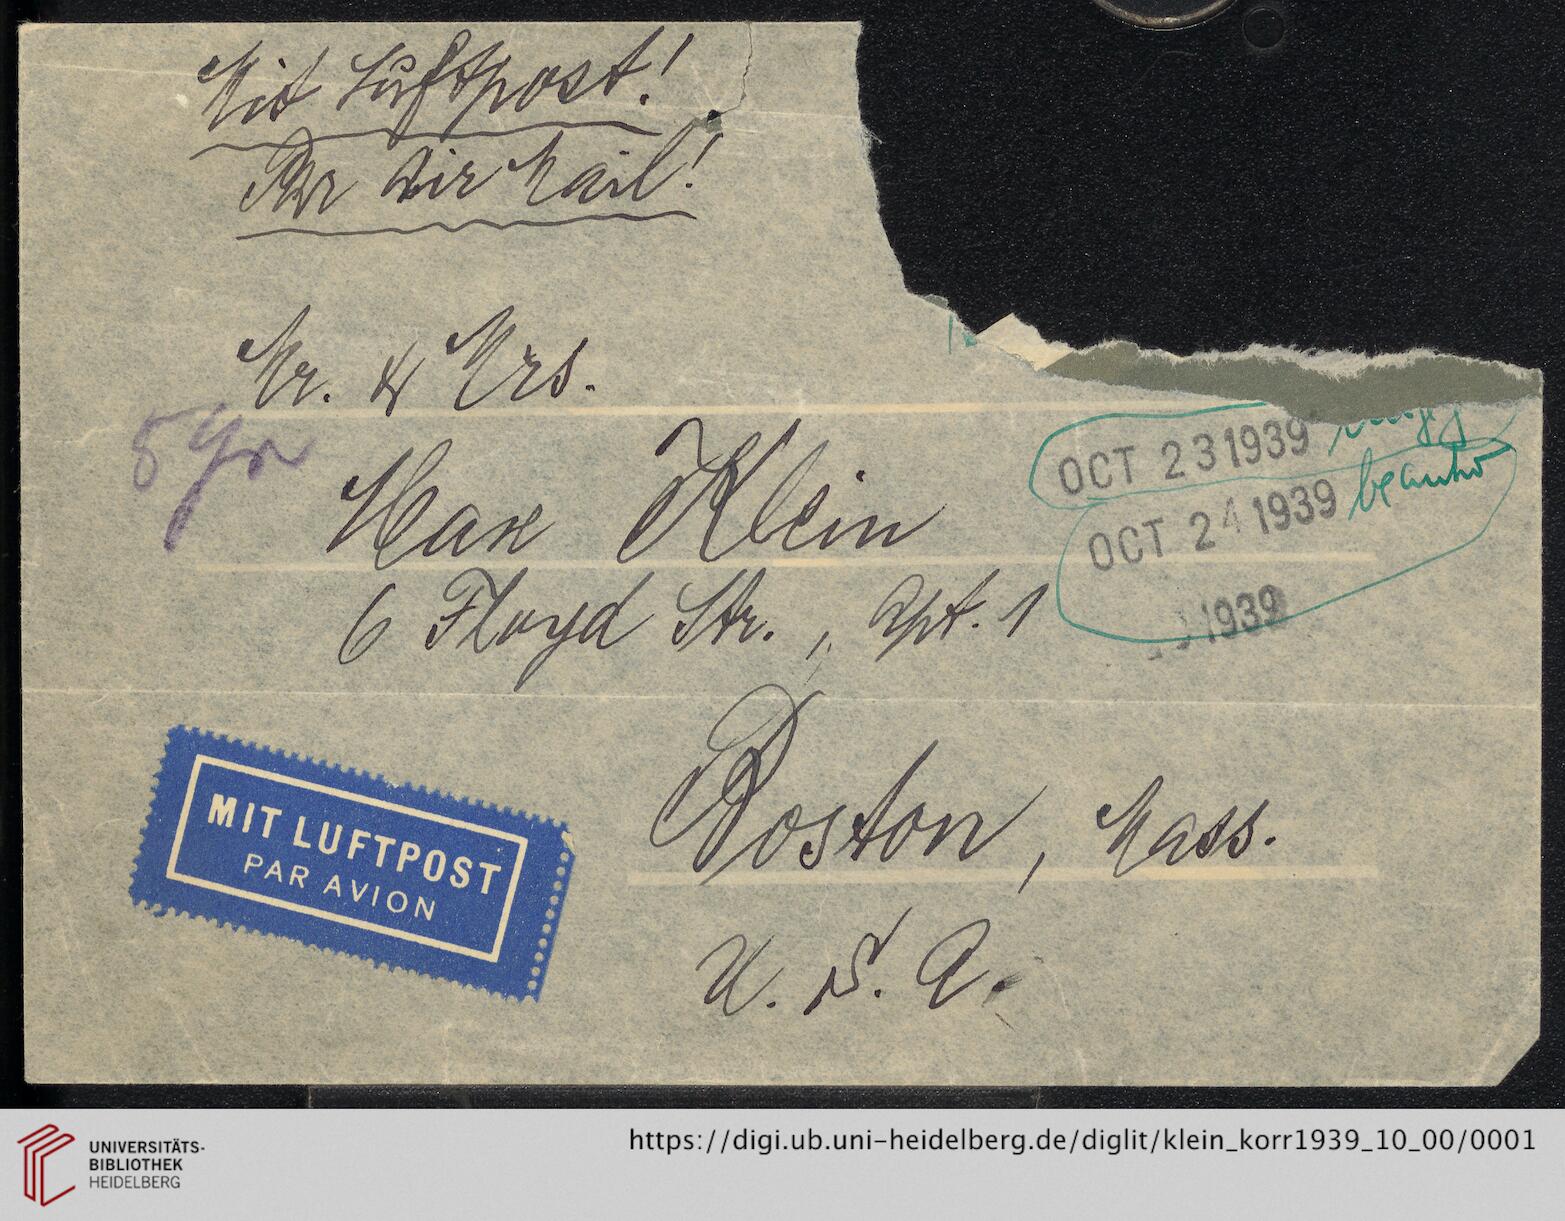 Mit Luftpost!
Per Air Mail!
Mr. & Mrs.
5 gr
Max Klein
6 Floyd Str., Apt. 1
Boston, Mass.
U. S. A.
OCT 23 1939
OCT 24 1939 beantw
1939
MIT LUFTPOST
PAR AVION
UNIVERSITÄTS-
BIBLIOTHEK
HEIDELBERG
https://digi.ub.uni-heidelberg.de/diglit/klein_korr1939_10_00/0001